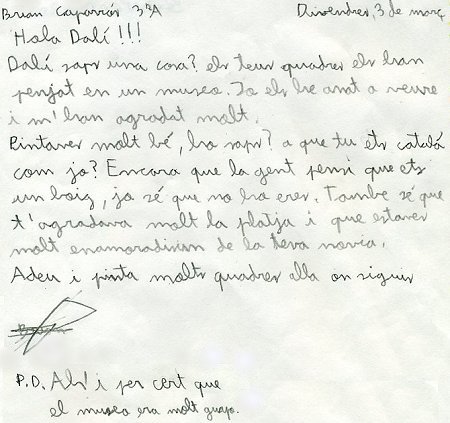 Brian Caparrós 3rA Divendres, 3 de març
Hola Dalí!!!
Dalí saps una cosa? els teus quadres els han
penjat en un museo. Jo els he anat a veure
i m'han agradat molt.
Pintaves molt bé, ho saps? a que tu ets català
com jo? Encara que la gent pensi que ets
un boig, jo sé que no ho eres. També sé que
t'agradava molt la platja i que estaves
molt enamoradisim de la teva novia.
Adeu i pinta molts quadres alla on siguis
P.D. Ah! i per cert que
el museo era molt guapo.